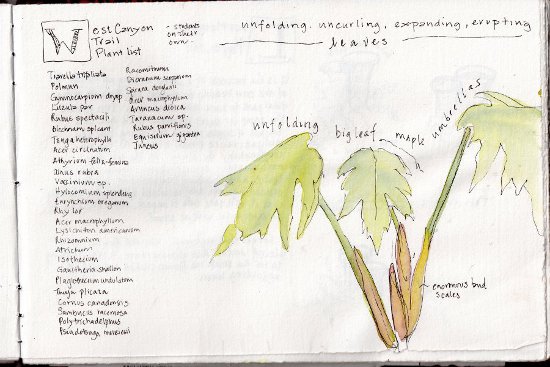 West Canyon
Trail
Plant list
- students
on their
own -
unfolding. uncurling, expanding, erupting
leaves
Tiarella trifoliata
Polmun
Gymnocarpium dryop
Luzula par
Rubus spectabilis
Blechnum spicant
Tsuga heterophylla
Acer circinatum
Athyrium felix-femina
Alnus rubra
Vaccinium sp.
Hylocomium splendens
Eurynchium oreganum
Rhy lor
Acer macrophyllum
Lysichiton americanum
Rhizomnium
Atrichum
Isothecium
Gaultheria shallon
Plagiothecium undulatum
Thuja plicata
Cornus canadensis
Sambucus racemosa
Polytrichadelphus
Pseudotsuga menziesii
Racomitrium
Dicranum scoparium
Spiraea douglasii
Acer macrophyllum
Aruncus dioica
Taraxacum sp.
Rubus parviflorus
Equisetum giganteum
Juncus
unfolding
bigleaf maple
umbrellas
enormous bud
scales